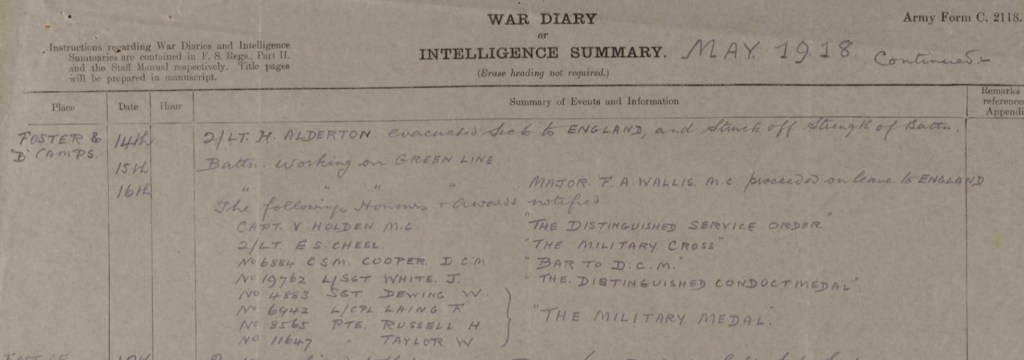 WAR DIARY
Army Form C. 2118.
or
Instructions regarding War Diaries and Intelligence
Summaries are contained in F. S. Regs., Part II.
and the Staff Manual respectively. Title pages
will be prepared in manuscript.
INTELLIGENCE SUMMARY. MAY 1918 Continued:-
(Erase heading not required.)
Place Date Hour Summary of Events and Information Remarks
reference
Appendi
FOSTER & 14th 2/LT. H. ALDERTON. evacuated Sick to ENGLAND, and Struck off Strength of Battn.
"D" CAMPS.
15th Battn. working on GREEN LINE.
16th " " " " MAJOR. F. A. WALLIS. M.C proceeded on leave to ENGLAND
The following Honours & Awards notified
CAPT. V. HOLDEN M.C. "THE DISTINGUISHED SERVICE ORDER"
2/LT. E S. CHEEL. "THE MILITARY CROSS"
No 6884 C S M. COOPER. D.C.M "BAR TO D.C.M."
No 19762 L/SGT WHITE. J. "THE DISTINGUISHED CONDUCT MEDAL"
No 4883 SGT DEWING W.
No 6942 L/CPL LAING F
No 8565 PTE. RUSSELL H
No 11647 " TAYLOR W
"THE MILITARY MEDAL".